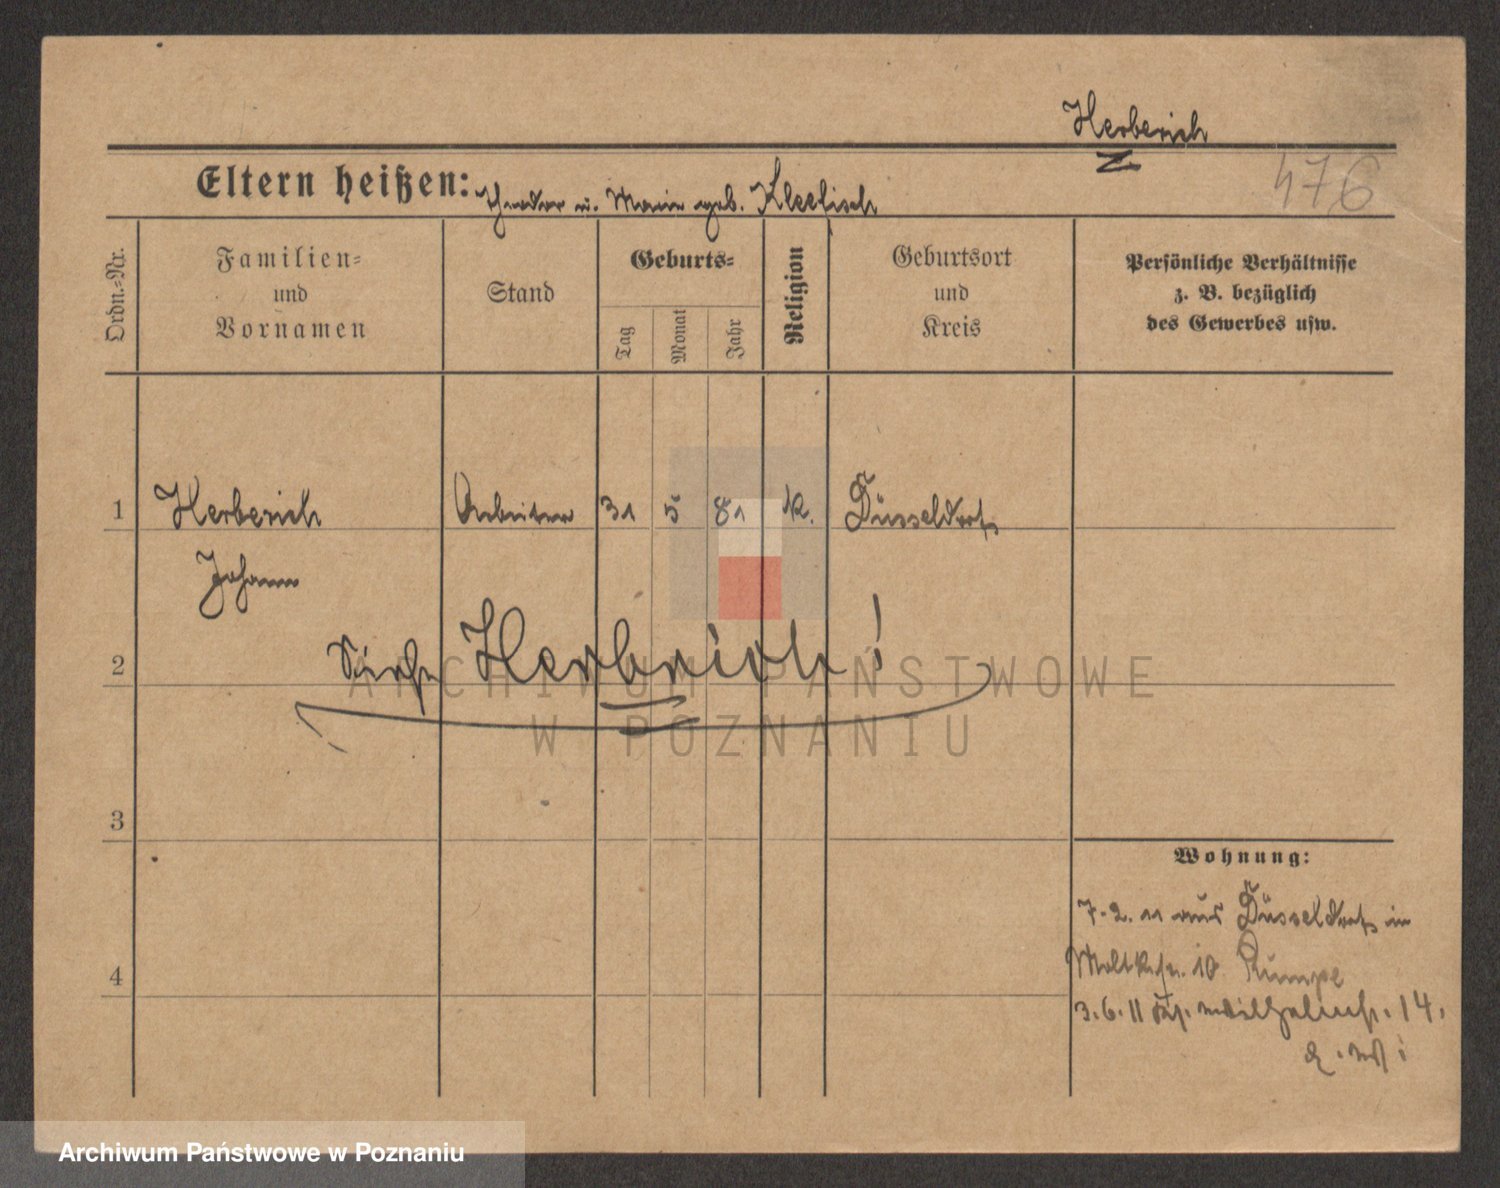 Herberich
476
Eltern heißen: Theodor u. Marie geb. Kleefisch
Ordn.-Nr.
Familien-
und
Vornamen
Stand
Geburts-
Tag
Monat
Jahr
Religion
Geburtsort
und
Kreis
Persönliche Verhältnisse
z. B. bezüglich
des Gewerbes usw.
1 Herberich Arbeiter 31 5 81 k. Düsseldorf
Johann
2 Siehe Herbrich!
3
4
ARCHIWUM PAŃSTWOWE
W POZNANIU
Wohnung:
7.2.11 aus Düsseldorf in
Moltkestr. 10 Rumpe
3.6.11 Wilhelmstr. 14.
Archiwum Państwowe w Poznaniu